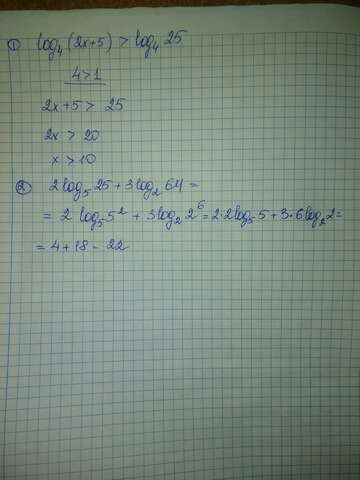 1) log₄(2x+5) > log₄ 25
4>1
2x+5 > 25
2x > 20
x > 10
2) 2log₅ 25 + 3log₂ 64 =
= 2 log₅ 5² + 3log₂ 2⁶ = 2·2log₅ 5 + 3·6log₂ 2 =
= 4 + 18 = 22